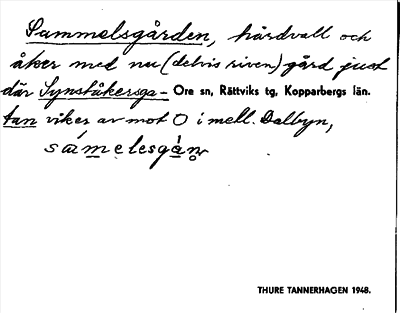 Sammelsgården, hårdvall och
åker med nu (delvis riven) gård just
där Synståkersga-
Ore sn, Rättviks tg, Kopparbergs län.
tan viker av mot O i mell. Dalbyn,
THURE TANNERHAGEN 1948.